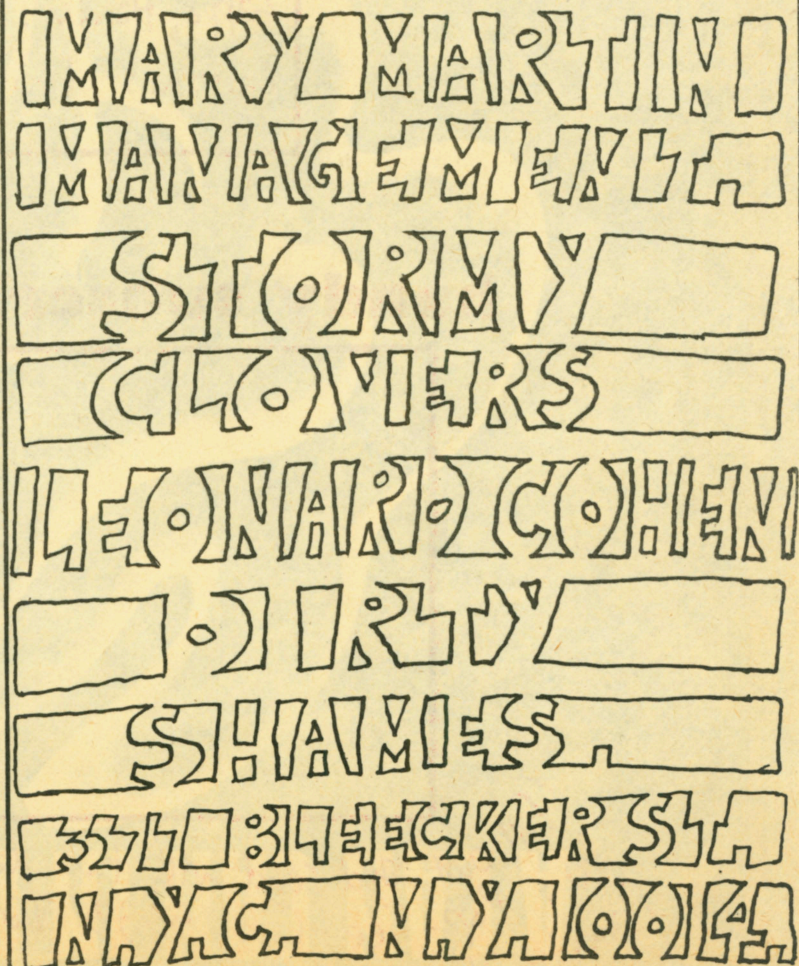 MARY MARTIN
MANAGEMENT.
STORMY
CLOVERS
LEONARD COHEN
DIRTY
SHAMES.
351 BLEECKER ST.
N.Y.C. N.Y. 10014.